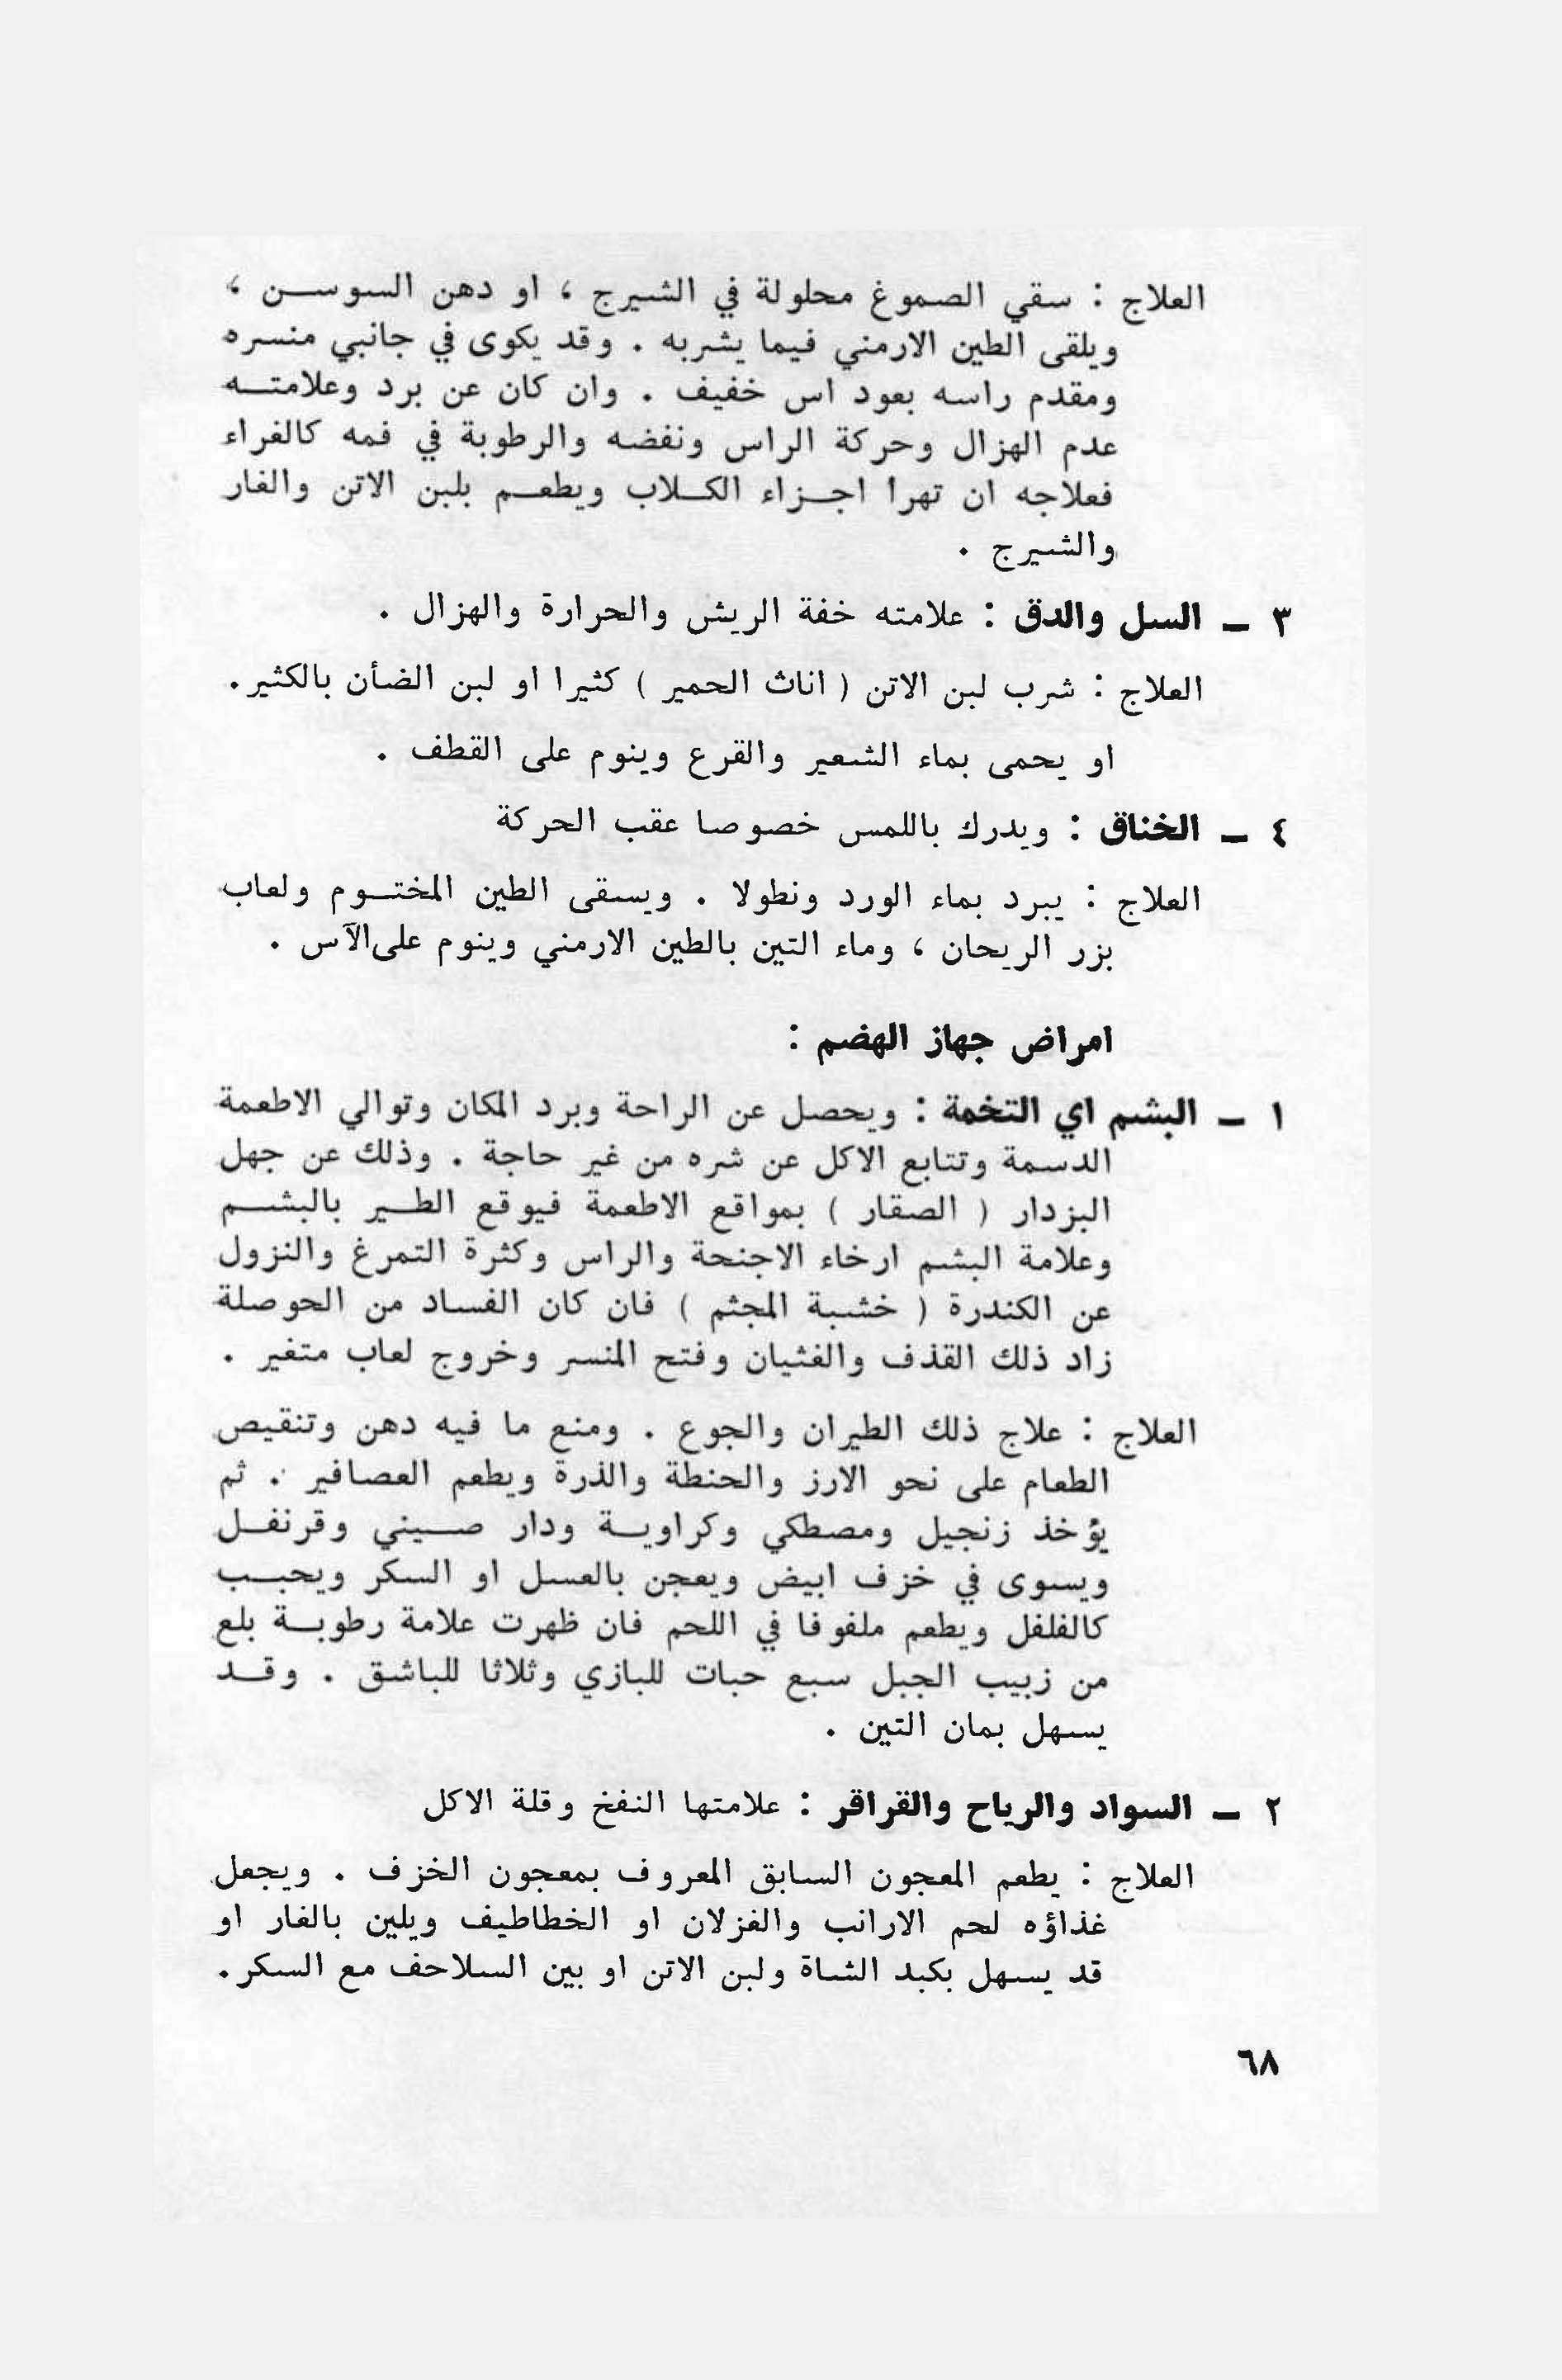 العلاج : سقي الصموغ محلولة في الشيرج ، او دهن السوسن ،
ويلقى الطين الارمني فيما يشربه . وقد يكوى في جانبي منسره
ومقدم راسه بعود اس خفيف . وان كان عن برد وعلامته
عدم الهزال وحركة الراس ونفضه والرطوبة في فمه كالغراء
فعلاجه ان تهرا اجزاء الكلاب ويطعم بلبن الاتن والفار
والشيرج .
٣ – السل والدق : علامته خفة الريش والحرارة والهزال .
العلاج : شرب لبن الاتن ( اناث الحمير ) كثيرا او لبن الضأن بالكثير .
او يحمى بماء الشعير والقرع وينوم على القطف .
٤ – الخناق : ويدرك باللمس خصوصا عقب الحركة
العلاج : يبرد بماء الورد ونطولا . ويسقى الطين المختوم ولعاب
بزر الريحان ، وماء التين بالطين الارمني وينوم على الآس .
امراض جهاز الهضم :
١ – البشم اي التخمة : ويحصل عن الراحة وبرد المكان وتوالي الاطعمة
الدسمة وتتابع الاكل عن شره من غير حاجة . وذلك عن جهل
البزدار ( الصقار ) بمواقع الاطعمة فيوقع الطير بالبشم
وعلامة البشم ارخاء الاجنحة والراس وكثرة التمرغ والنزول
عن الكندرة ( خشبة المجثم ) فان كان الفساد من الحوصلة
زاد ذلك القذف والغثيان وفتح المنسر وخروج لعاب متغير .
العلاج : علاج ذلك الطيران والجوع . ومنع ما فيه دهن وتنقيص
الطعام على نحو الارز والحنطة والذرة ويطعم العصافير . ثم
يؤخذ زنجيل ومصطكي وكراوية ودار صيني وقرنفل
ويسوى في خزف ابيض ويعجن بالعسل او السكر ويحبب
كالفلفل ويطعم ملفوفا في اللحم فان ظهرت علامة رطوبة بلع
من زبيب الجبل سبع حبات للبازي وثلاثا للباشق . وقد
يسهل بمان التين .
٢ – السواد والرياح والقراقر : علامتها النفخ وقلة الاكل
العلاج : يطعم المعجون السابق المعروف بمعجون الخزف . ويجعل
غذاؤه لحم الارانب والغزلان او الخطاطيف ويلين بالفار او
قد يسهل بكبد الشاة ولبن الاتن او بين السلاحف مع السكر .
٦٨